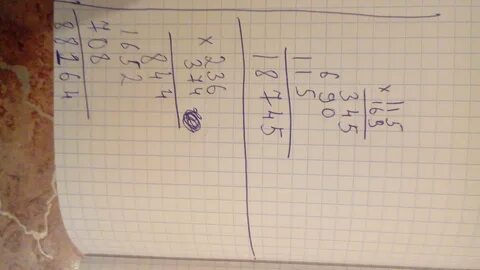 115
× 163
345
690
115
18745
236
× 374
844
1652
708
88264